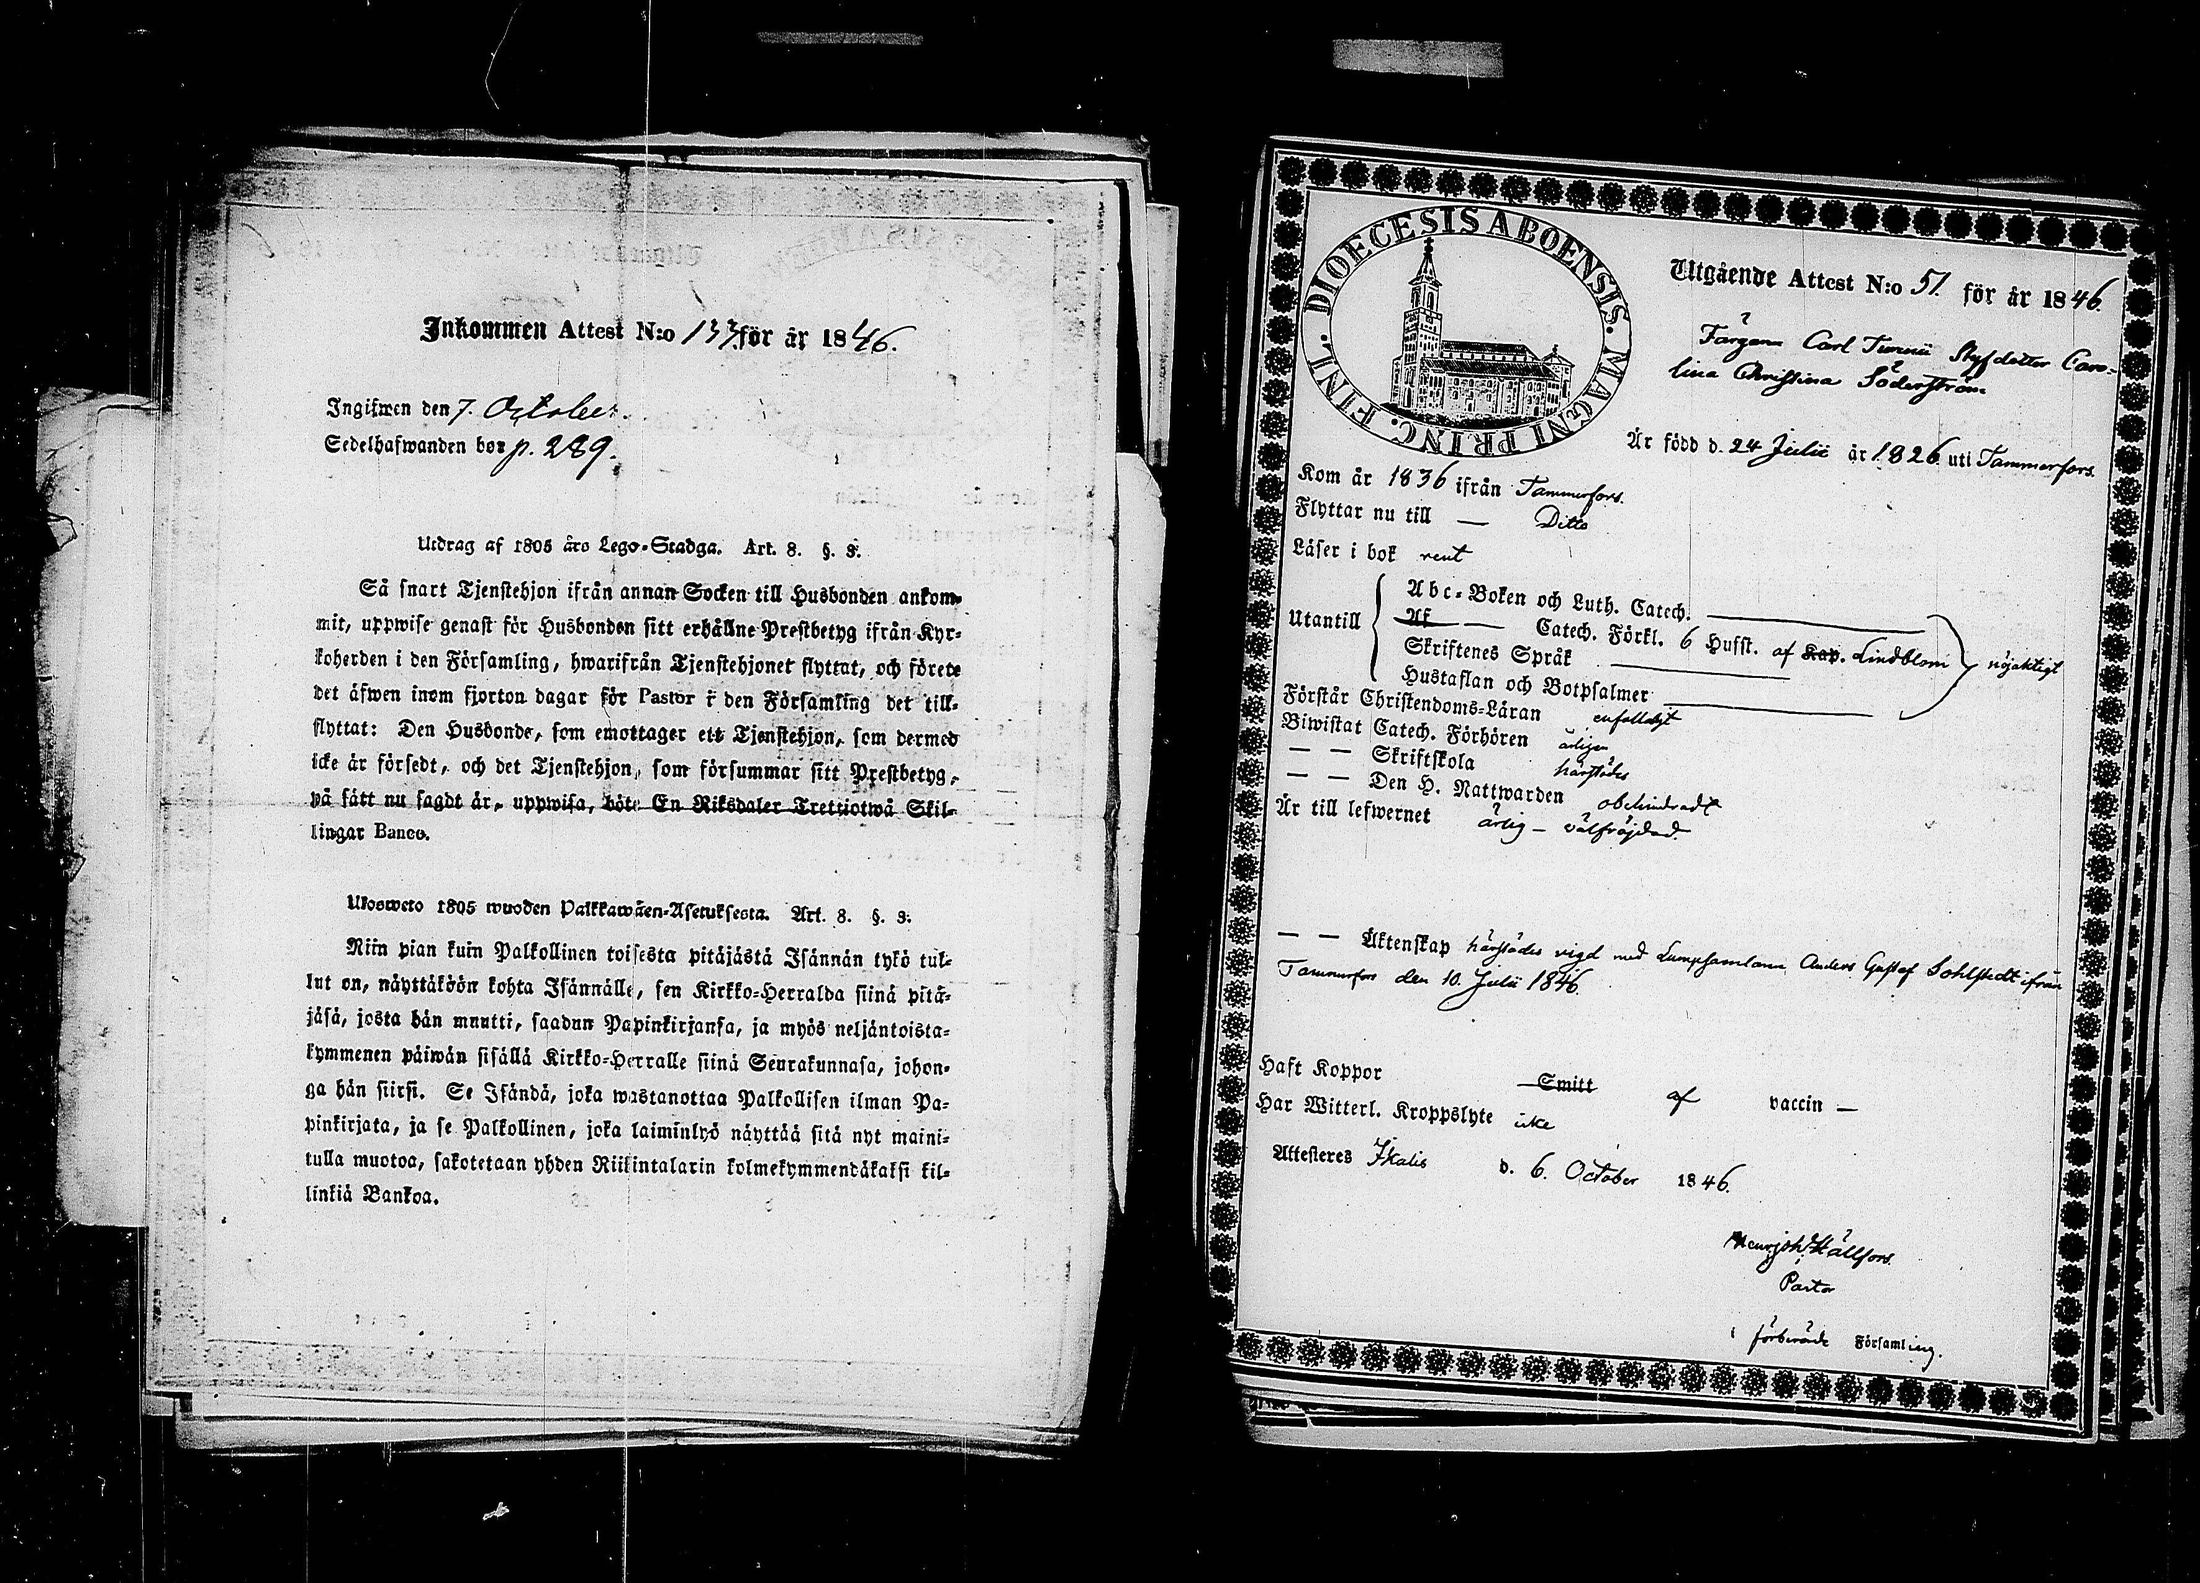 Inkommen Attest N:o 133 för år 1846.
Ingifwen den 7. October.
Sedelhafwanden bor p. 289.
Utdrag af 1805 års Lego-Stadga. Art. 8. §. 3.
Så snart Tjenstehjon ifrån annan Socken till Husbonden ankom-
mit, uppwise genast för Husbonden sitt erhållne Prestbetyg ifrån Kyr-
koherden i den Församling, hwarifrån Tjenstehjonet flyttat, och förete
det äfwen inom fjorton dagar för Pastor i den Församling det till-
flyttat: Den Husbonde, som emottager ett Tjenstehjon, som dermed
icke är försedt, och det Tjenstehjon, som försummar sitt Prestbetyg,
på sätt nu sagdt är, uppwisa, böte En Riksdaler Trettiotwå Skil-
lingar Banco.
Ulosweto 1805 wuoden Palkkawäen-Asetuksesta. Art. 8. §. 3.
Niin pian kuin Palkollinen toisesta pitäjästä Isännän tykö tul-
lut on, näyttäköön kohta Isännälle, sen Kirkko-Herralda siinä pitä-
jäsä, josta hän muutti, saadun Papinkirjansa, ja myös neljäntoista-
kymmenen päiwän sisällä Kirkko-Herralle siinä Seurakunnasa, johon-
ga hän siirsi. Se Isändä, joka wastanottaa Palkollisen ilman Pa-
pinkirjata, ja se Palkollinen, joka laiminlyö näyttää sitä nyt maini-
tulla muotoa, sakotetaan yhden Riikintalarin kolmekymmendäkaksi kil-
linkiä Bankoa.
DIOECESIS ABOENSIS. MAGNI PRINC. FINL.
Utgående Attest N:o 51. för år 1846.
Färgare Carl Styfdotter Caro-
lina Christina Söderström
Är född d. 24 Julii år 1826 uti Tammerfors.
Kom år 1836 ifrån Tammerfors.
Flyttar nu till — Ditto
Läser i bok rent
Utantill
Abc-Boken och Luth. Catech.
Af — Catech. Förkl. 6 Hufst. af Kap. Lindblom nöjaktigt
Skriftenes Språk
Hustaflan och Botpsalmer
Förstår Christendoms-Läran enfalldigt
Biwistat Catech. Förhören årligen
— — Skriftskola härstädes
— — Den H. Nattwarden obehindradt
Är till lefwernet ärlig — välfräjdad
— — Äktenskap härstädes vigd med Lumpsamlaren Anders Gustaf Sohlstedt ifrån
Tammerfors den 10. Julii 1846.
Haft Koppor Smitt af vaccin —
Har Witterl. Kroppslyte icke
Attesteres Ikalis d. 6. October 1846.
Hällfors
Pastor
i förberörde Församling.